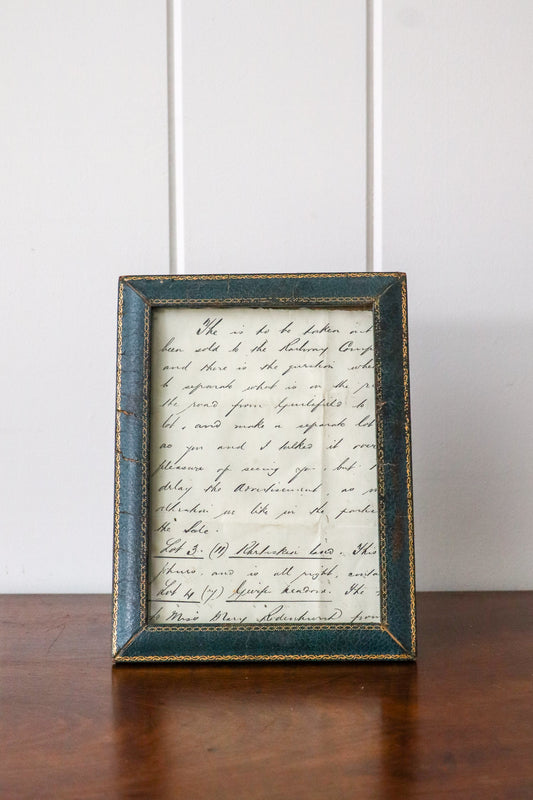 The is to be taken out
been sold to the Railway Comp
and there is the question whe
to separate what is on the
the road from Guilsfield to
lot, and make a separate lot
as you and I talked it over
pleasure of seeing you, but
delay the Advertisement, as
alteration we like in the
the Sale.
Lot 3. land. This
and is all right,
Lot 4 (7) The
to "Miss Mary from